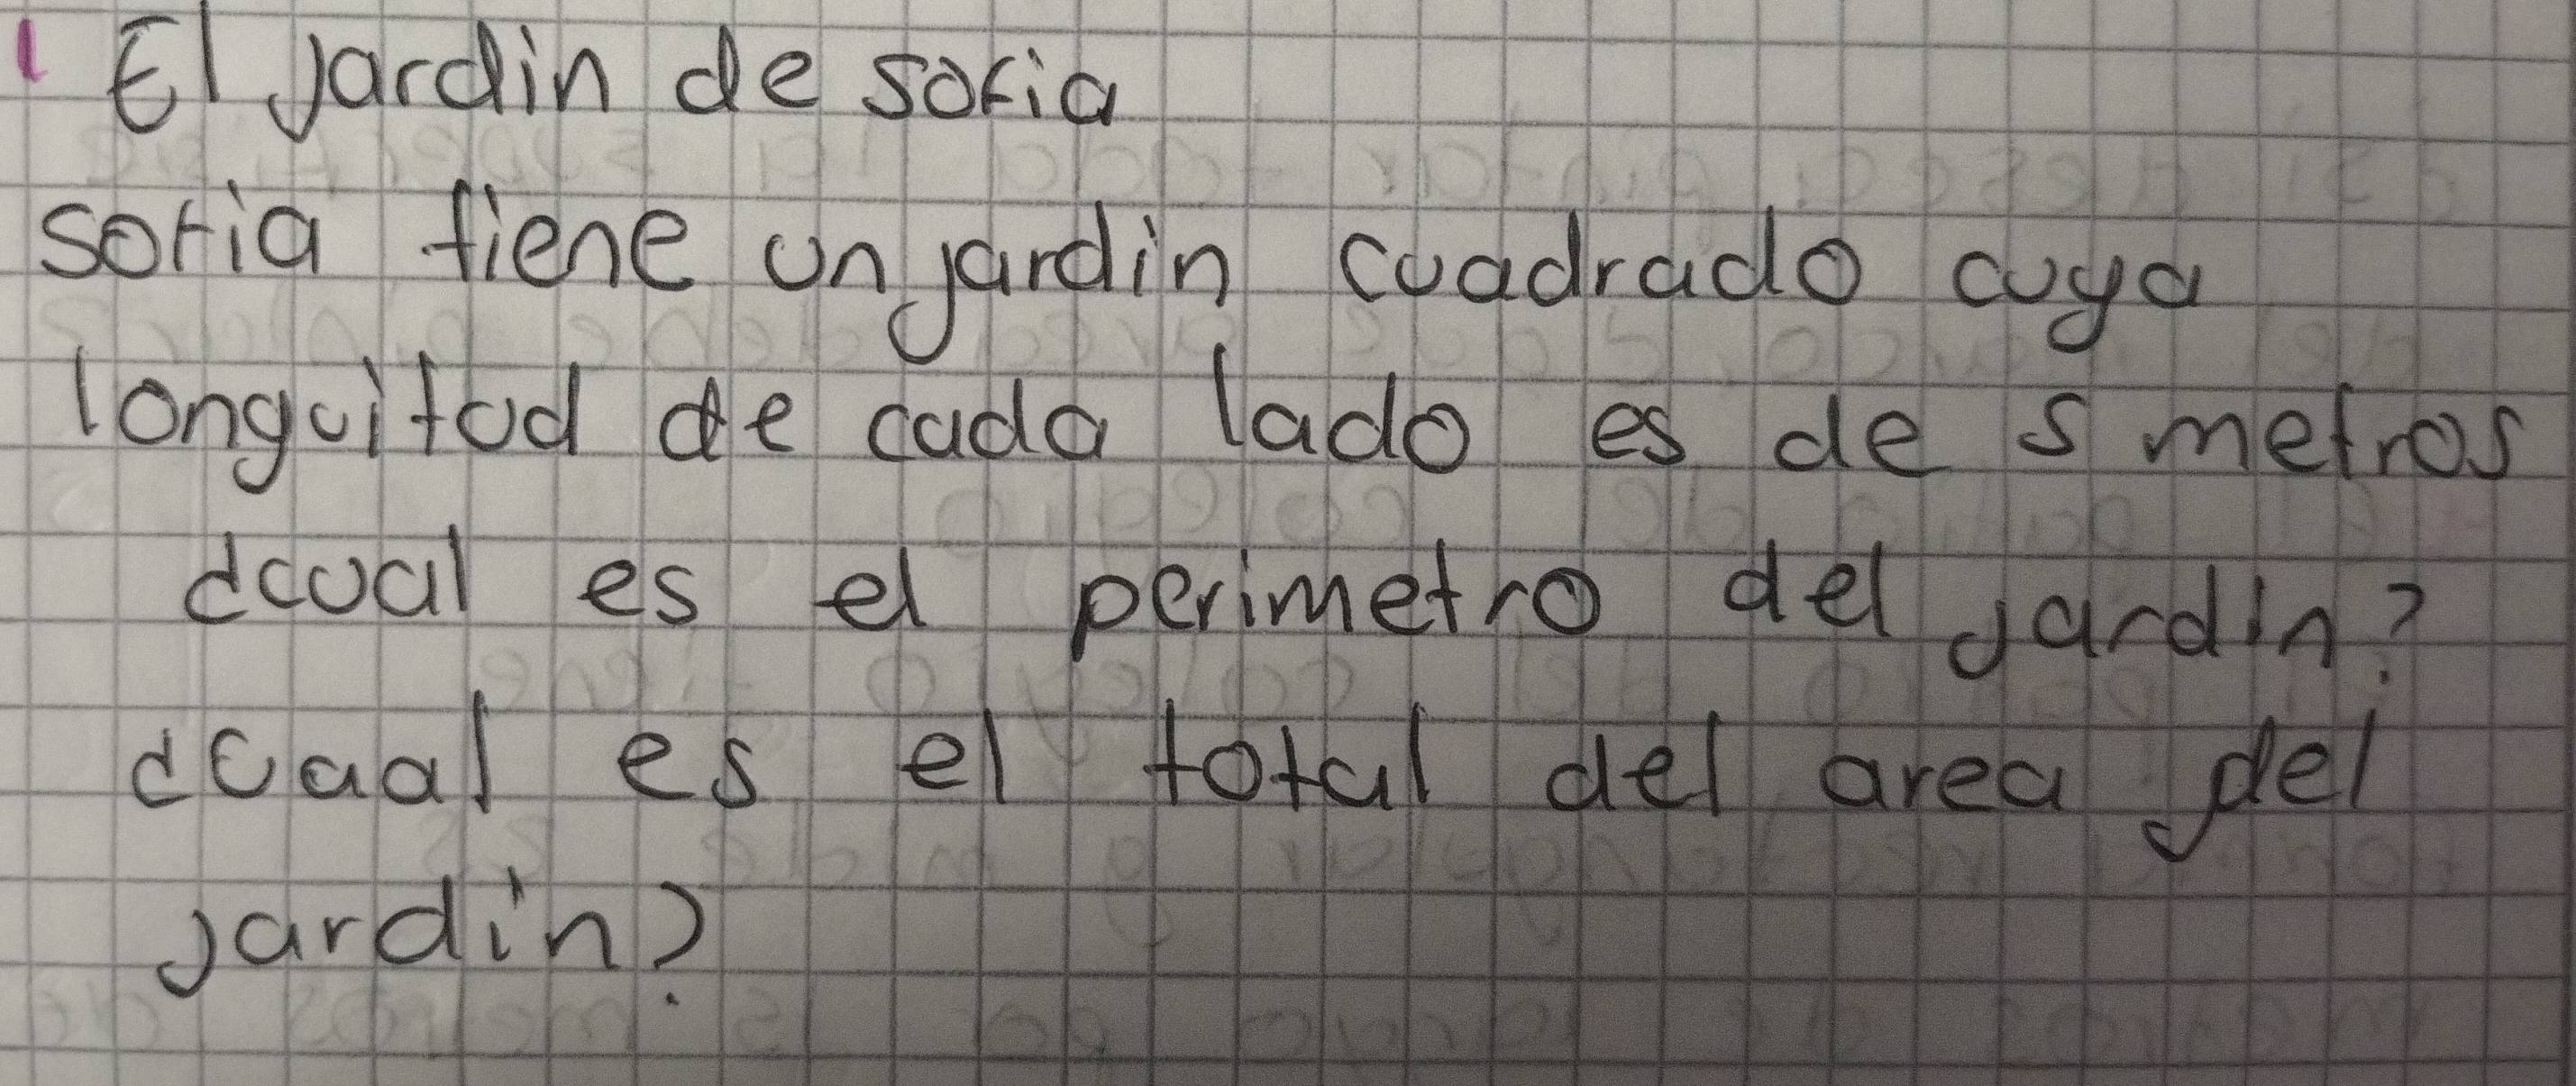 1 El jardin de sofia
sofia tiene un jardin cuadrado cuya
longuitud de cada lado es de 5 metros
¿cual es el perimetro del jardin?
¿cual es el total del area del
jardin?